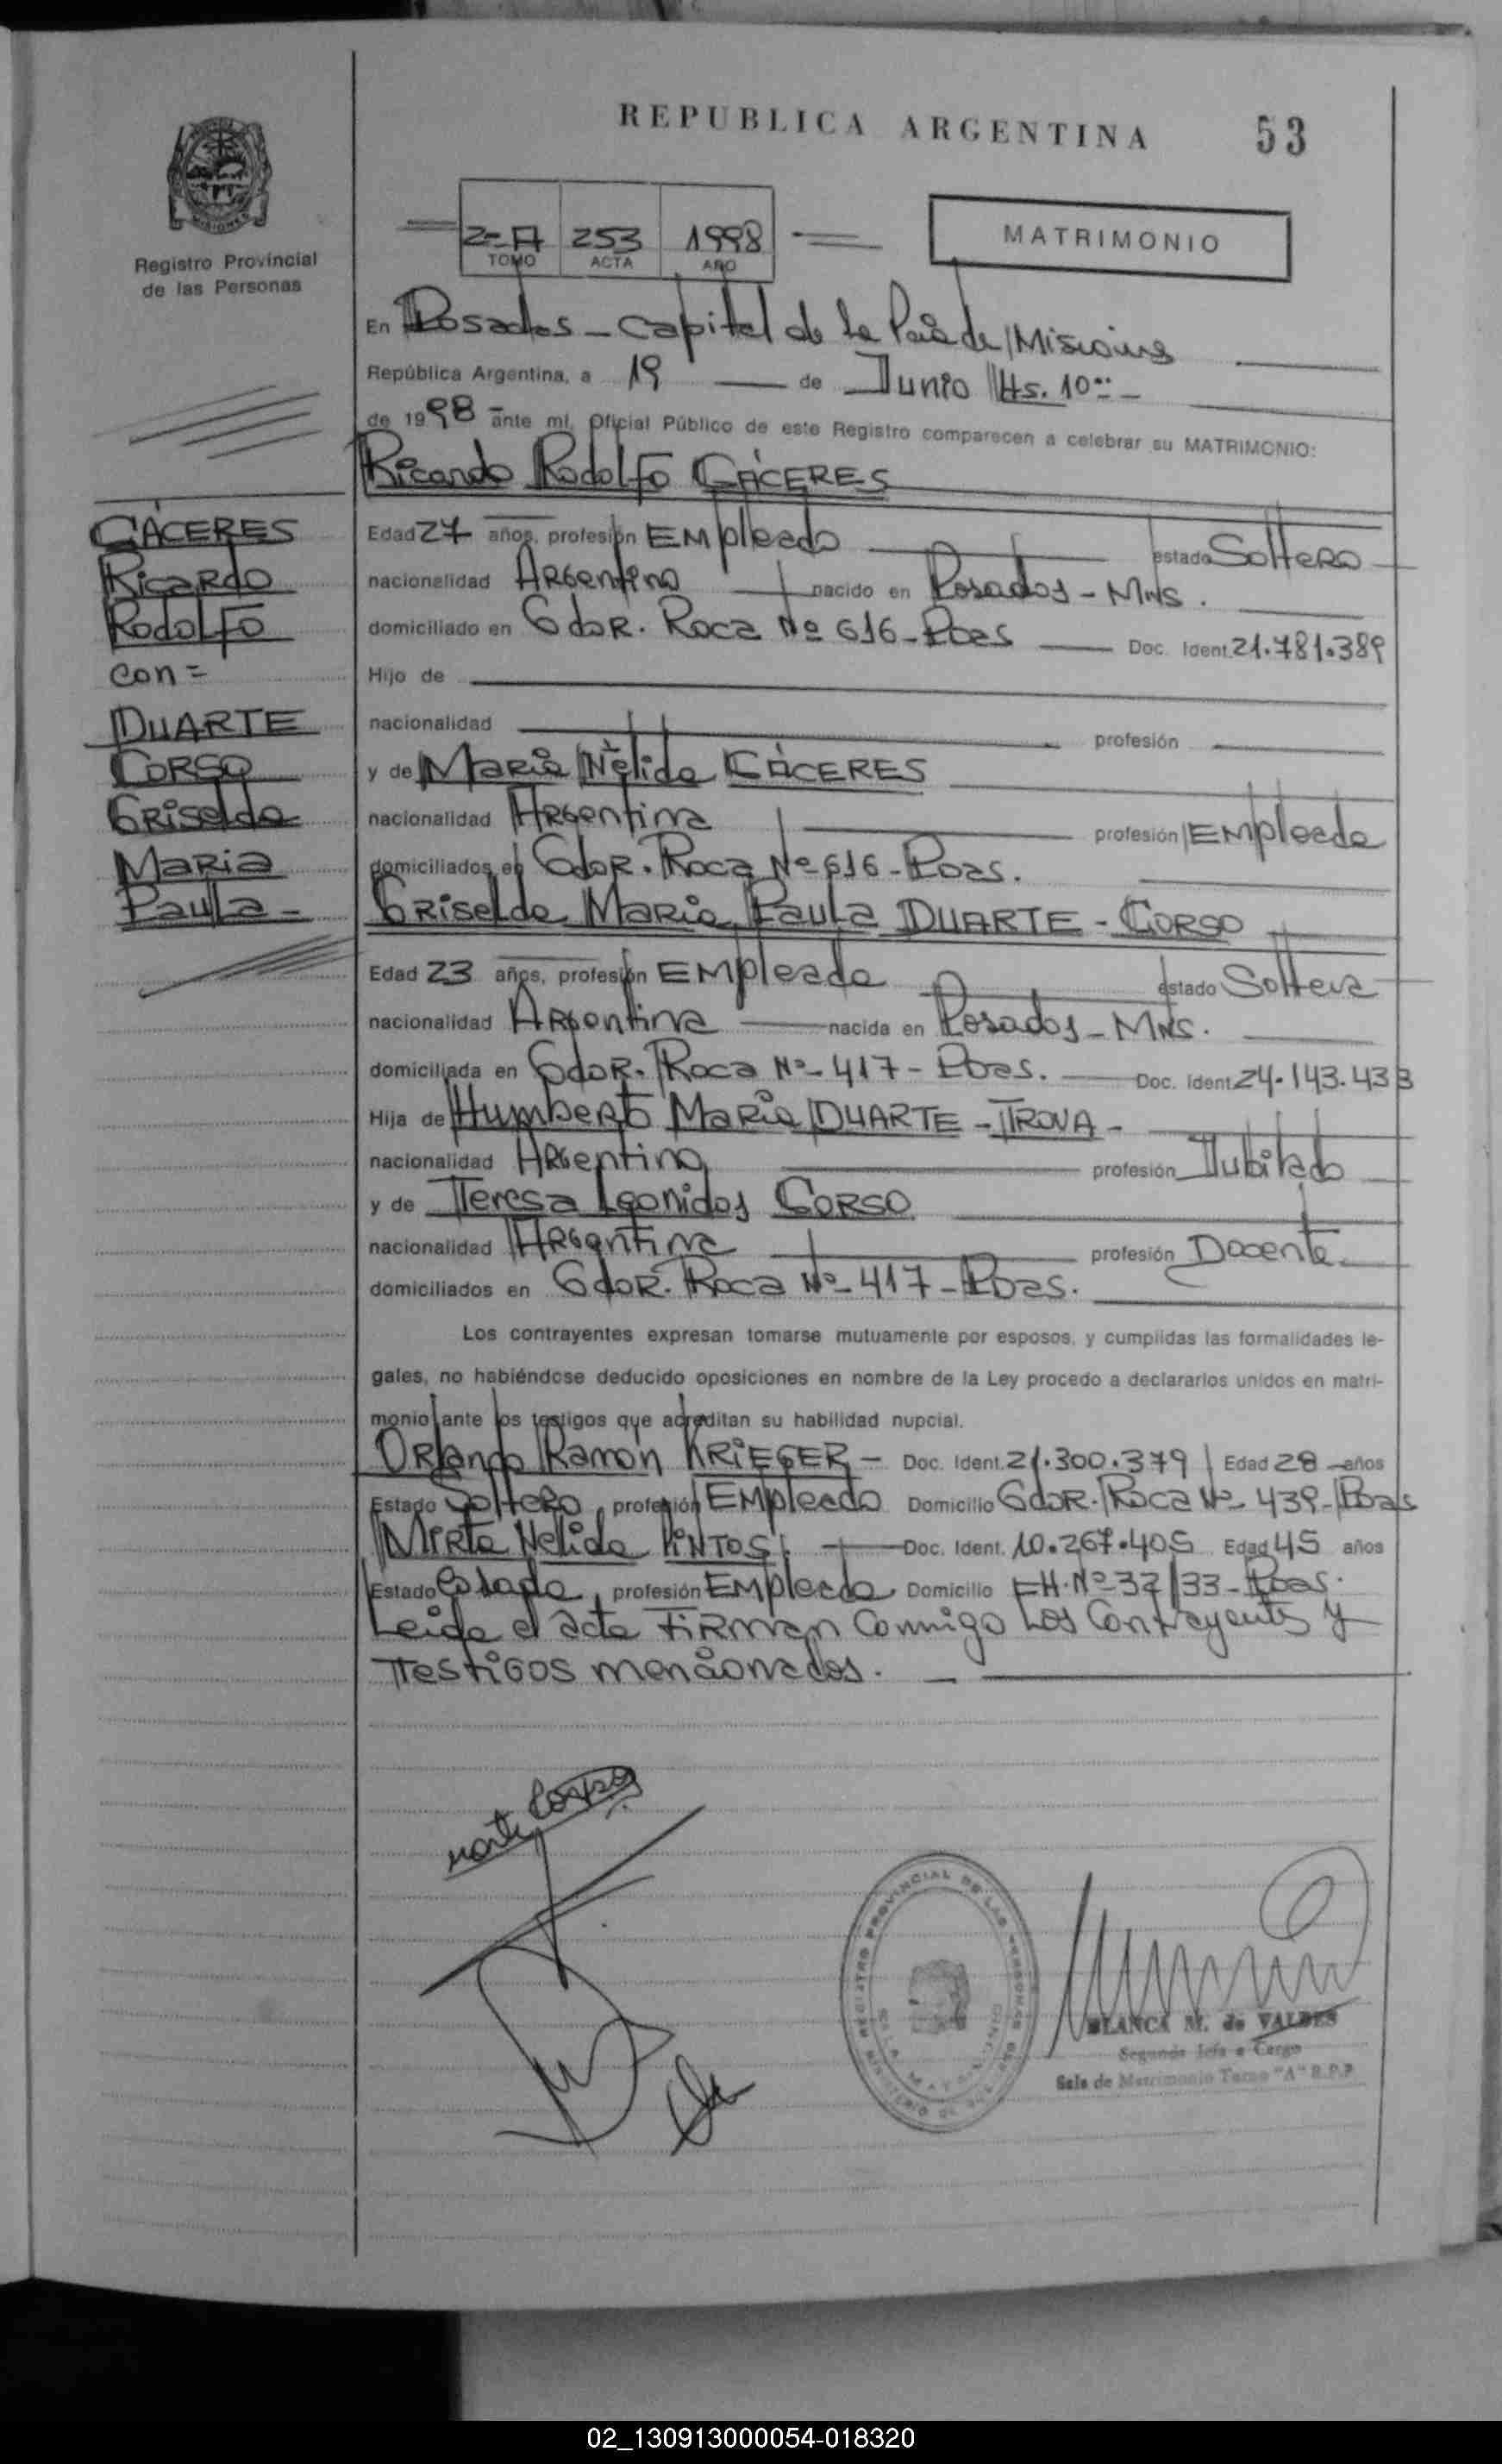 REPUBLICA ARGENTINA 53
MISIONES
Registro Provincial
de las Personas
2=A 253 1998
TOMO ACTA AÑO
MATRIMONIO
En Posadas - Capital de la Pcia de Misiones
República Argentina, a 19 de Junio Hs. 10
de 1998 ante mí, Oficial Público de este Registro comparecen a celebrar su MATRIMONIO:
Ricardo Rodolfo CÁCERES
CÁCERES
Ricardo
Rodolfo
con=
DUARTE
CORSO
Griselda
Maria
Paula-
Edad 27 años, profesión Empleado estado Soltero
nacionalidad Argentino nacido en Posadas - Mns.
domiciliado en Gdor. Roca Nº 616 - Pdas Doc. Ident. 21.781.389
Hijo de
nacionalidad profesión
y de María Nélida CÁCERES
nacionalidad Argentina profesión Empleada
domiciliados en Gdor. Roca Nº 616 - Pdas.
Griselda Maria Paula DUARTE - CORSO
Edad 23 años, profesión Empleada estado Soltera
nacionalidad Argentina nacida en Posadas - Mns.
domiciliada en Gdor. Roca Nº 417 - Pdas. Doc. Ident. 24.143.433
Hija de Humberto María DUARTE - TROVA -
nacionalidad Argentino profesión Jubilado
y de Teresa Leonidas CORSO
nacionalidad Argentina profesión Docente
domiciliados en Gdor. Roca Nº 417 - Pdas.
Los contrayentes expresan tomarse mutuamente por esposos, y cumplidas las formalidades le-
gales, no habiéndose deducido oposiciones en nombre de la Ley procedo a declararlos unidos en matri-
monio ante los testigos que acreditan su habilidad nupcial.
Orlando Ramon KRIEGER - Doc. Ident. 21.300.379 Edad 28 años
Estado Soltero, profesión Empleado Domicilio Gdor. Roca Nº 439 - Pdas
Mirta Nelida PINTOS Doc. Ident. 10.267.405 Edad 45 años
Estado Casada, profesión Empleada Domicilio CH. Nº 32/33 - Pdas.
Leida el acta firman conmigo los contrayentes y
Testigos mencionados.
REGISTRO PROVINCIAL DE LAS PERSONAS
BLANCA M. de VALDES
Segunda Jefa a Cargo
Sala de Matrimonio Turno "A" R.P.P
02_130913000054-018320